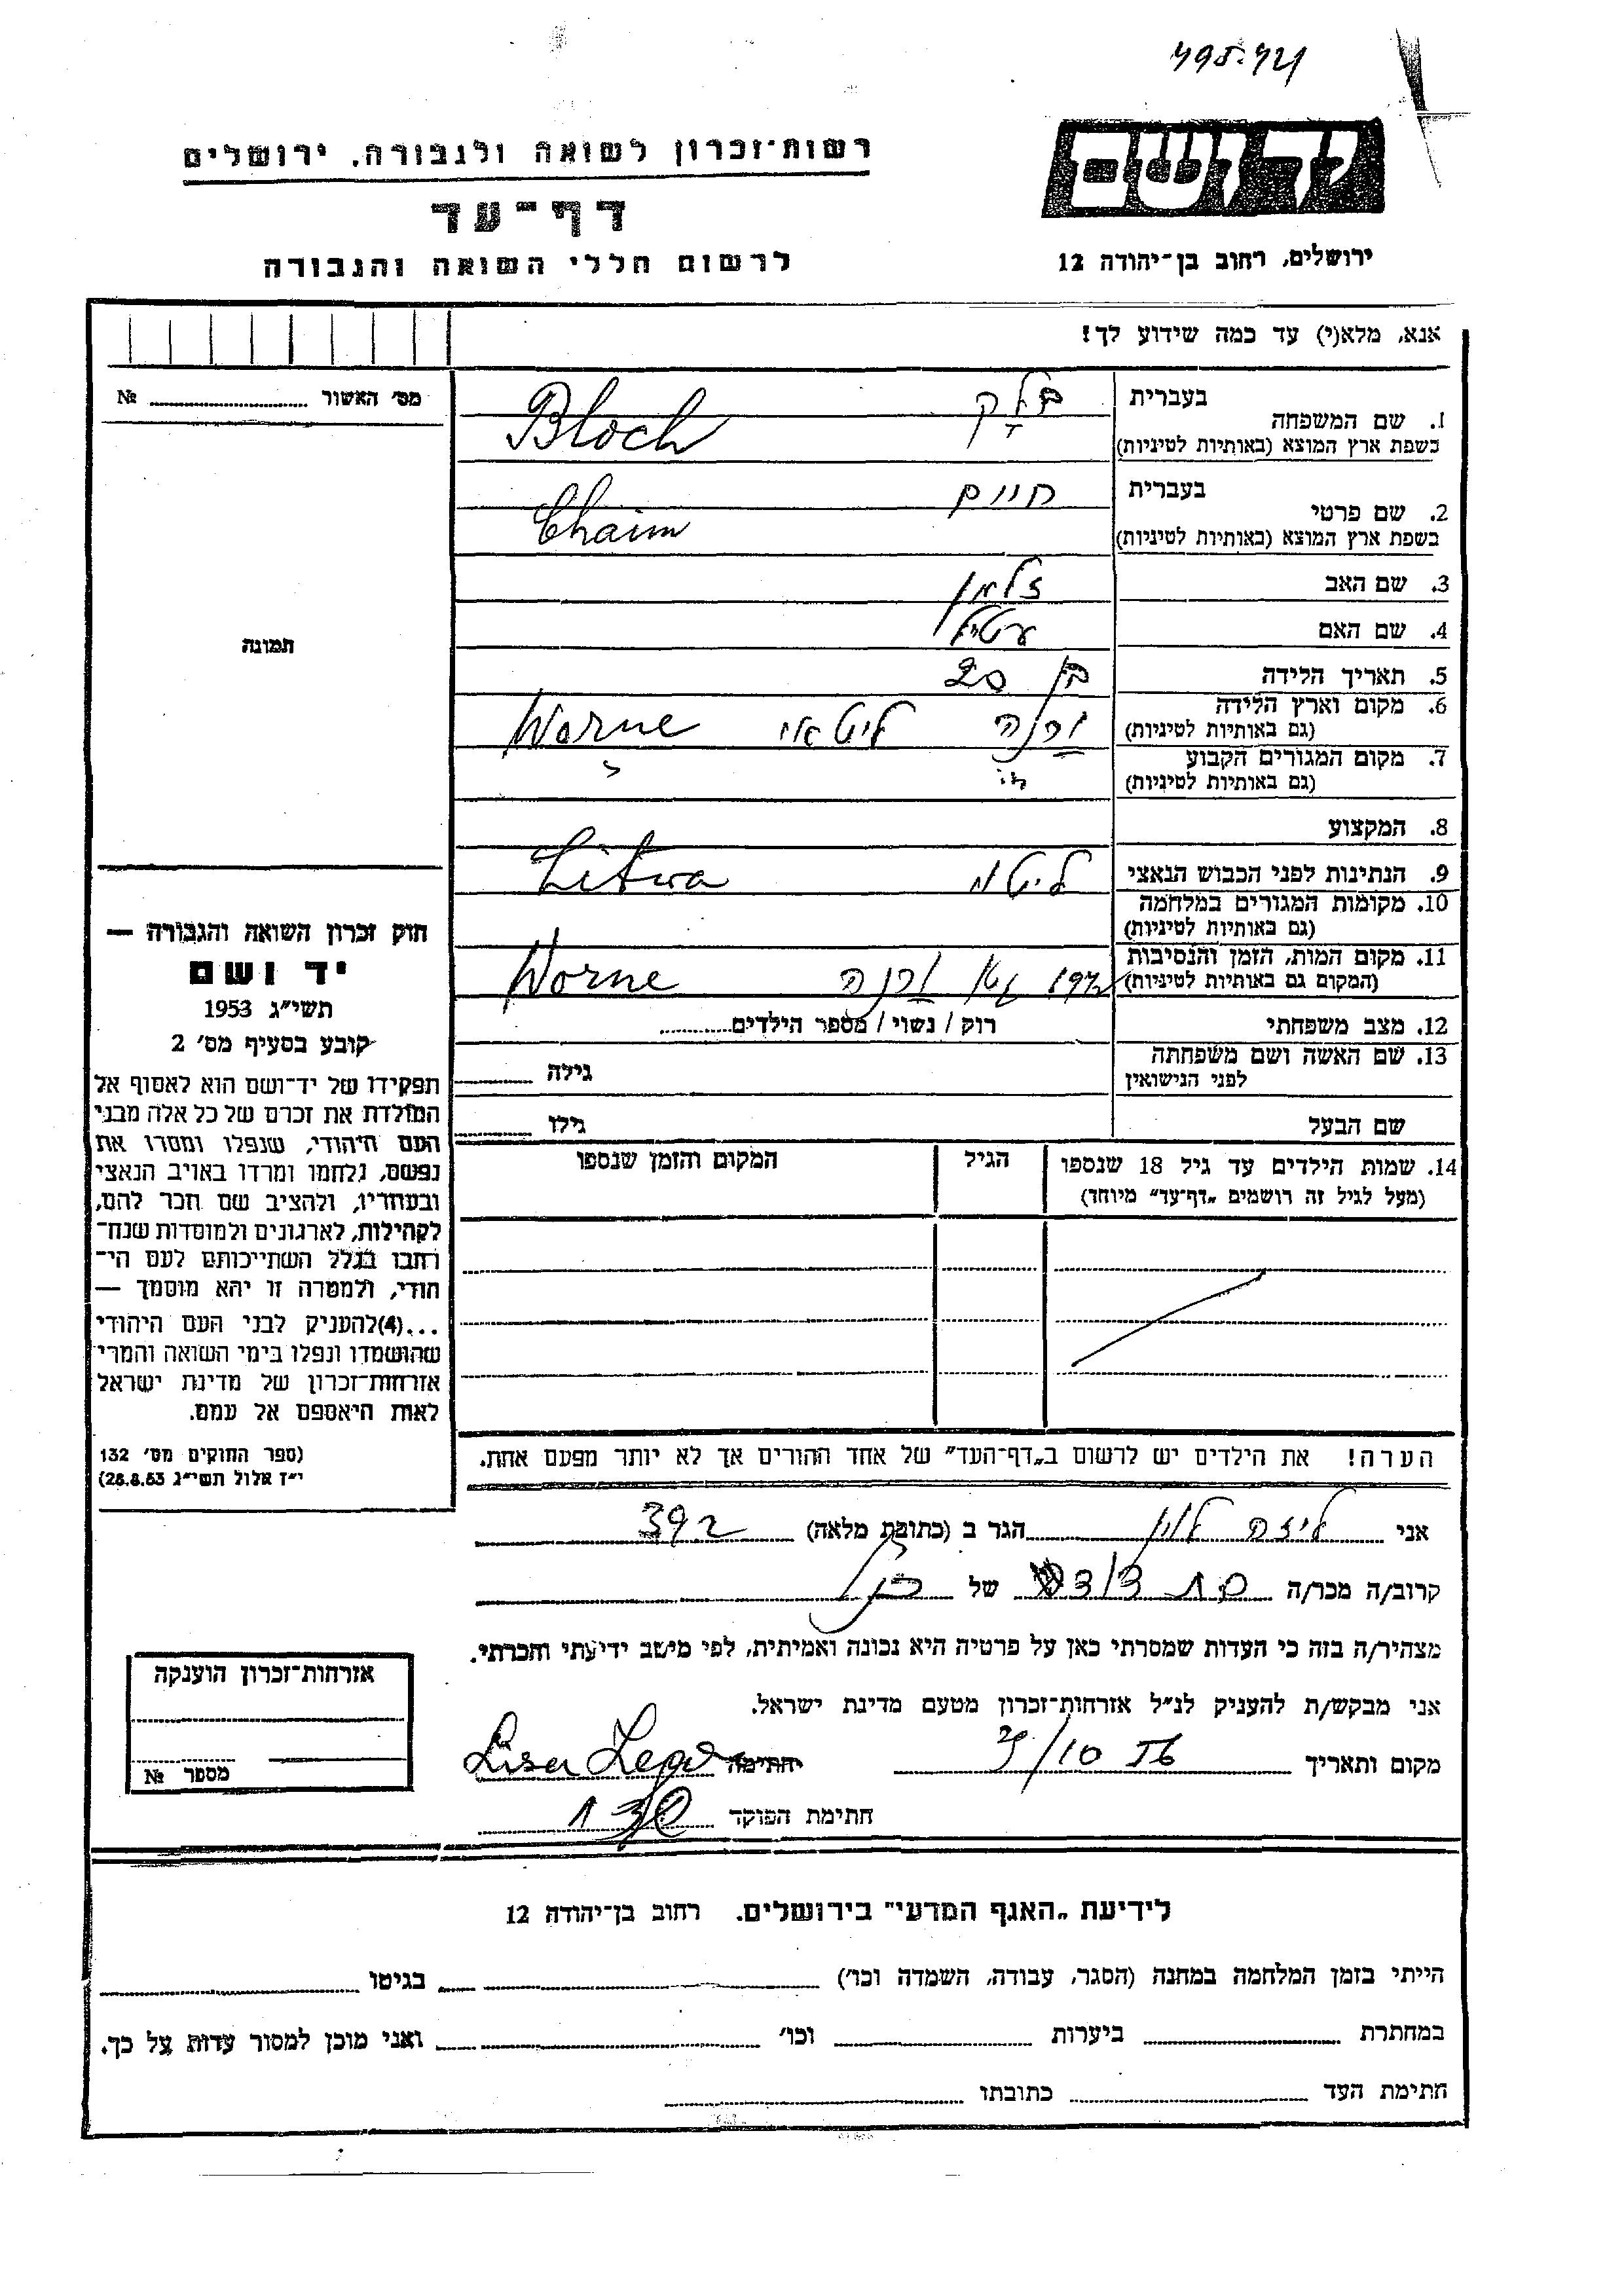 יד ושם
ירושלים, רחוב בן־יהודה 12
רשות־זכרון לשואה ולגבורה, ירושלים
דף־עד
לרשום חללי השואה והגבורה
אנא, מלא(י) עד כמה שידוע לך!
1. שם המשפחה בעברית בלק
בשפת ארץ המוצא (באותיות לטיניות) Bloch
2. שם פרטי בעברית חיים
בשפת ארץ המוצא (באותיות לטיניות) Chaim
3. שם האב זלמן
4. שם האם
5. תאריך הלידה בן 20
6. מקום וארץ הלידה ורנה Worne
(גם באותיות לטיניות)
7. מקום המגורים הקבוע
(גם באותיות לטיניות)
8. המקצוע
9. הנתינות לפני הכבוש הנאצי ליטא Litwa
10. מקומות המגורים במלחמה
(גם באותיות לטיניות)
11. מקום המות, הזמן והנסיבות ורנה Worne
(המקום גם באותיות לטיניות)
12. מצב משפחתי רוק / נשוי / מספר הילדים
13. שם האשה ושם משפחתה
לפני הנישואין גילה
שם הבעל גילו
14. שמות הילדים עד גיל 18 שנספו הגיל המקום והזמן שנספו
(מעל לגיל זה רושמים „דף־עד” מיוחד)
הערה! את הילדים יש לרשום ב„דף־העד” של אחד ההורים אך לא יותר מפעם אחת.
מס׳ האשור №
תמונה
חוק זכרון השואה והגבורה —
יד ושם
תשי״ג 1953
קובע בסעיף מס׳ 2
תפקידו של יד־ושם הוא לאסוף אל
המולדת את זכרם של כל אלה מבני
העם היהודי, שנפלו ומסרו את
נפשם, נלחמו ומרדו באויב הנאצי
ובעוזריו, ולהציב שם וזכר להם,
לקהילות, לארגונים ולמוסדות שנח־
רבו בגלל השתייכותם לעם הי־
הודי, ולמטרה זו יהא מוסמך —
...(4) להעניק לבני העם היהודי
שהושמדו ונפלו בימי השואה והמרי
אזרחות־זכרון של מדינת ישראל
לאות היאספם אל עמם.
(ספר החוקים מס׳ 132
י״ז אלול תשי״ג 28.8.53)
אני ליזה לוין הגר ב (כתובת מלאה) 392
קרוב/ה מכר/ה בת דודה של
מצהיר/ה בזה כי העדות שמסרתי כאן על פרטיה היא נכונה ואמיתית, לפי מיטב ידיעתי והכרתי.
אני מבקש/ת להעניק לנ״ל אזרחות־זכרון מטעם מדינת ישראל.
מקום ותאריך חתימה Lisa
חתימת הפוקד
אזרחות־זכרון הוענקה
מספר №
לידיעת „האגף המדעי” בירושלים. רחוב בן־יהודה 12
הייתי בזמן המלחמה במחנה (הסגר, עבודה, השמדה וכו׳) בגיטו
במחתרת ביערות וכו׳ ואני מוכן למסור עדות על כך.
חתימת העד כתובתו